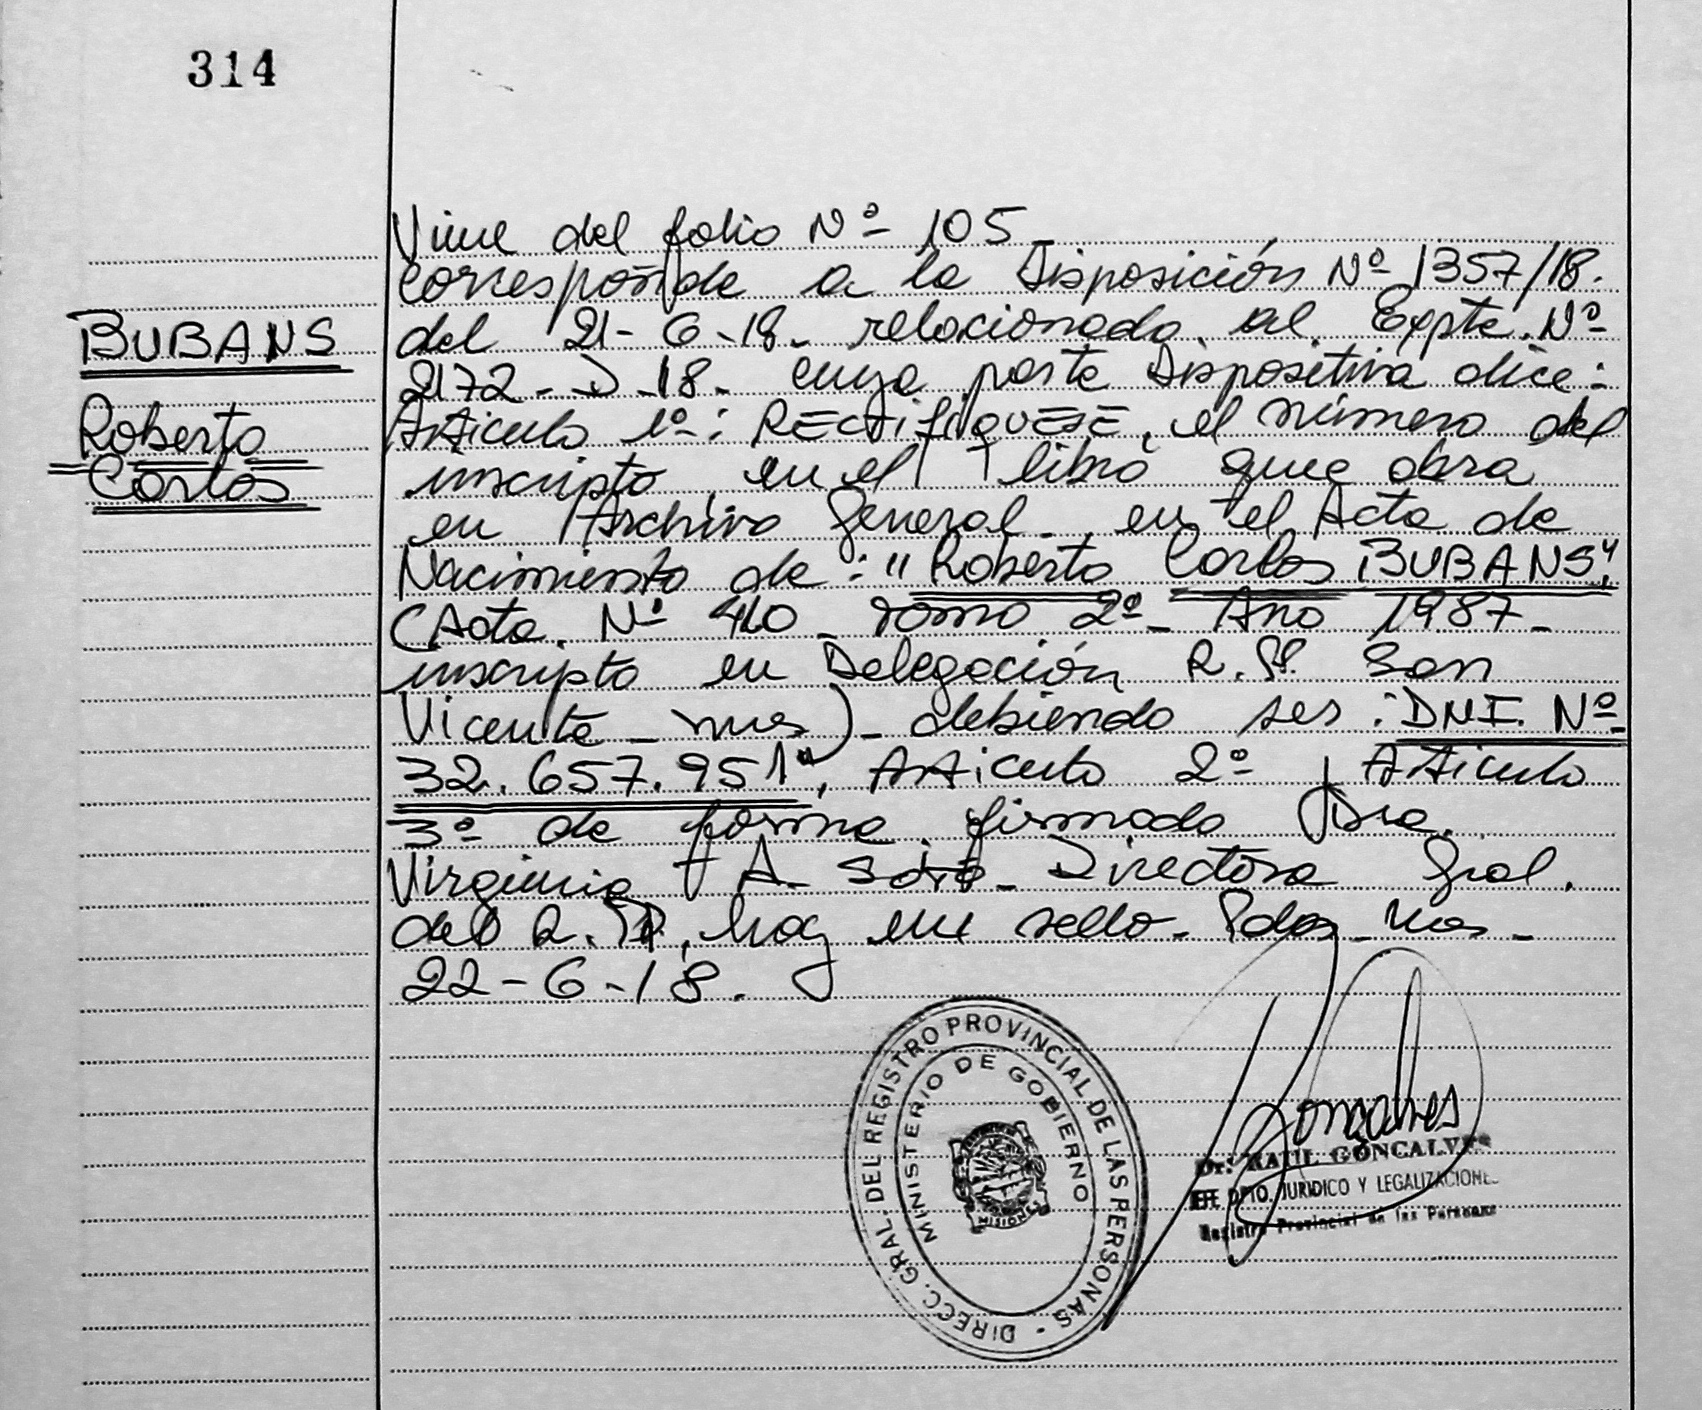 314
BUBANS
Roberto
Carlos
Viene del folio Nº 105
Corresponde a la Disposición Nº 1357/18.
del 21-6-18. relacionado al Expte. Nº
2172-D-18. cuya parte Dispositiva dice:
Artículo 1º: RECTIFIQUESE, el número del
inscripto en el libro que obra
en Archivo General en el Acta de
Nacimiento de: "Roberto Carlos BUBANS"
(Acta Nº 410 - Tomo 2º - Año 1987 -
inscripto en Delegación R.P. San
Vicente - mnes) - debiendo ser: DNI. Nº
32.657.951", Artículo 2º y Artículo
3º de forma firmado Dra.
Virginia A. Soto - Directora Gral.
del R.P., hay un sello. Pdas. Mnes -
22-6-18.
DIRECC. GRAL. DEL REGISTRO PROVINCIAL DE LAS PERSONAS -
MINISTERIO DE GOBIERNO
MISIONES
Goncalves
Dr. RAUL GONCALVES
JEFE DPTO. JURIDICO Y LEGALIZACIONES
Registro Provincial de las Personas